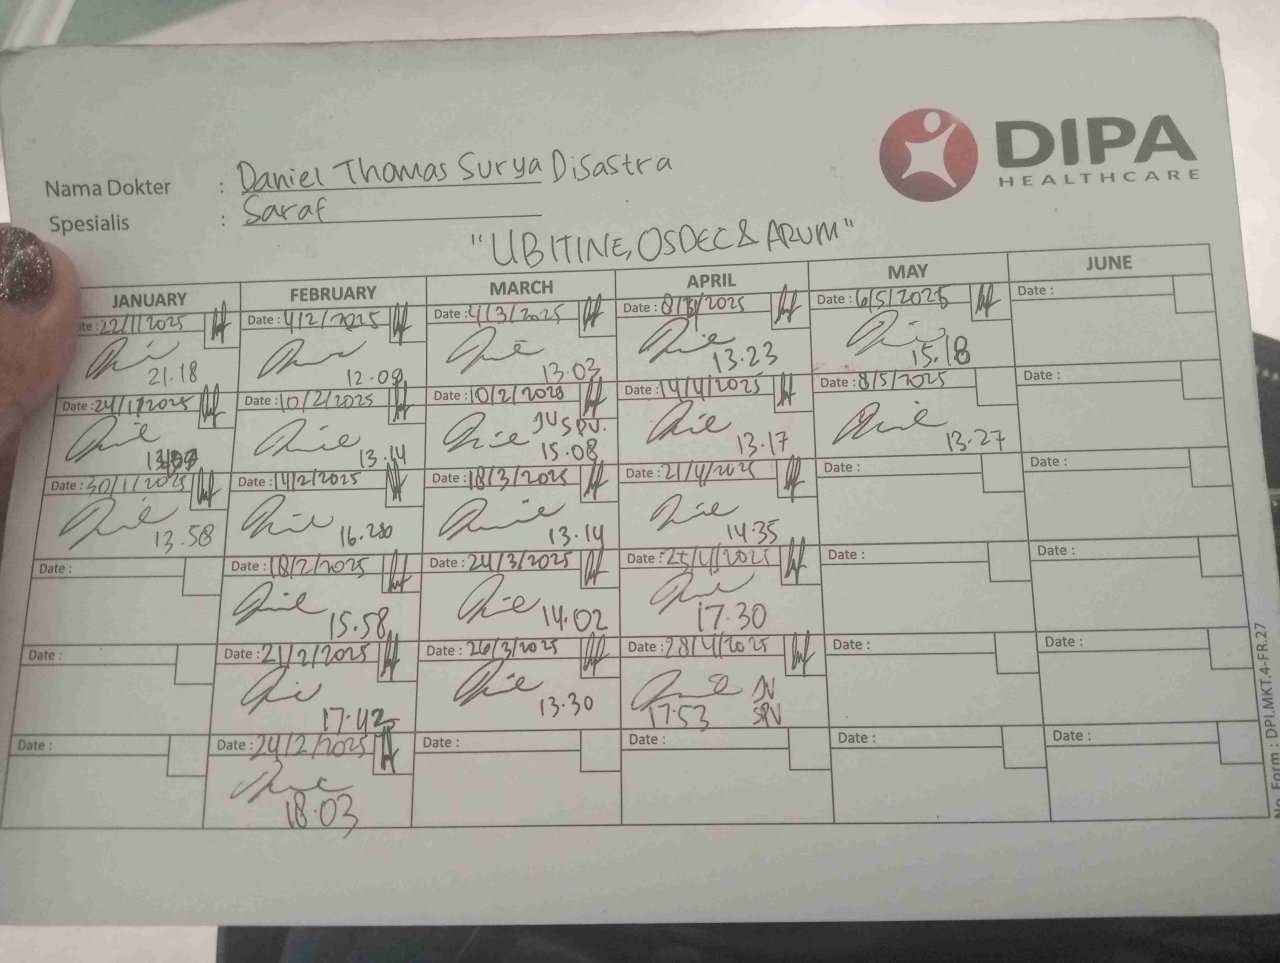 DIPA
HEALTHCARE
Nama Dokter : Daniel Thomas Surya Disastra
Spesialis : Saraf
"UBITINE, OSDEC & ARUM"
JANUARY FEBRUARY MARCH APRIL MAY JUNE
Date: 22/1/2025 Date: 4/2/2025 Date: 4/3/2025 Date: 8/4/2025 Date: 6/5/2025 Date:
21.18 12.09 13.03 13.23 15.18
Date: 24/1/2025 Date: 10/2/2025 Date: 10/2/2025 Date: 14/4/2025 Date: 8/5/2025 Date:
JV SPV.
13.14 15.08 13.17 13.27
Date: 30/1/2025 Date: 14/2/2025 Date: 18/3/2025 Date: 21/4/2025 Date: Date:
13.58 16.20 13.14 14.35
Date: Date: 18/2/2025 Date: 24/3/2025 Date: 25/4/2025 Date: Date:
15.58 14.02 17.30
Date: Date: 21/2/2025 Date: 26/3/2025 Date: 28/4/2025 Date: Date:
17.42 13.30 17.53 JV SPV
Date: Date: 24/2/2025 Date: Date: Date: Date:
18.03
No. Form : DPI.MKT.4-FR.27